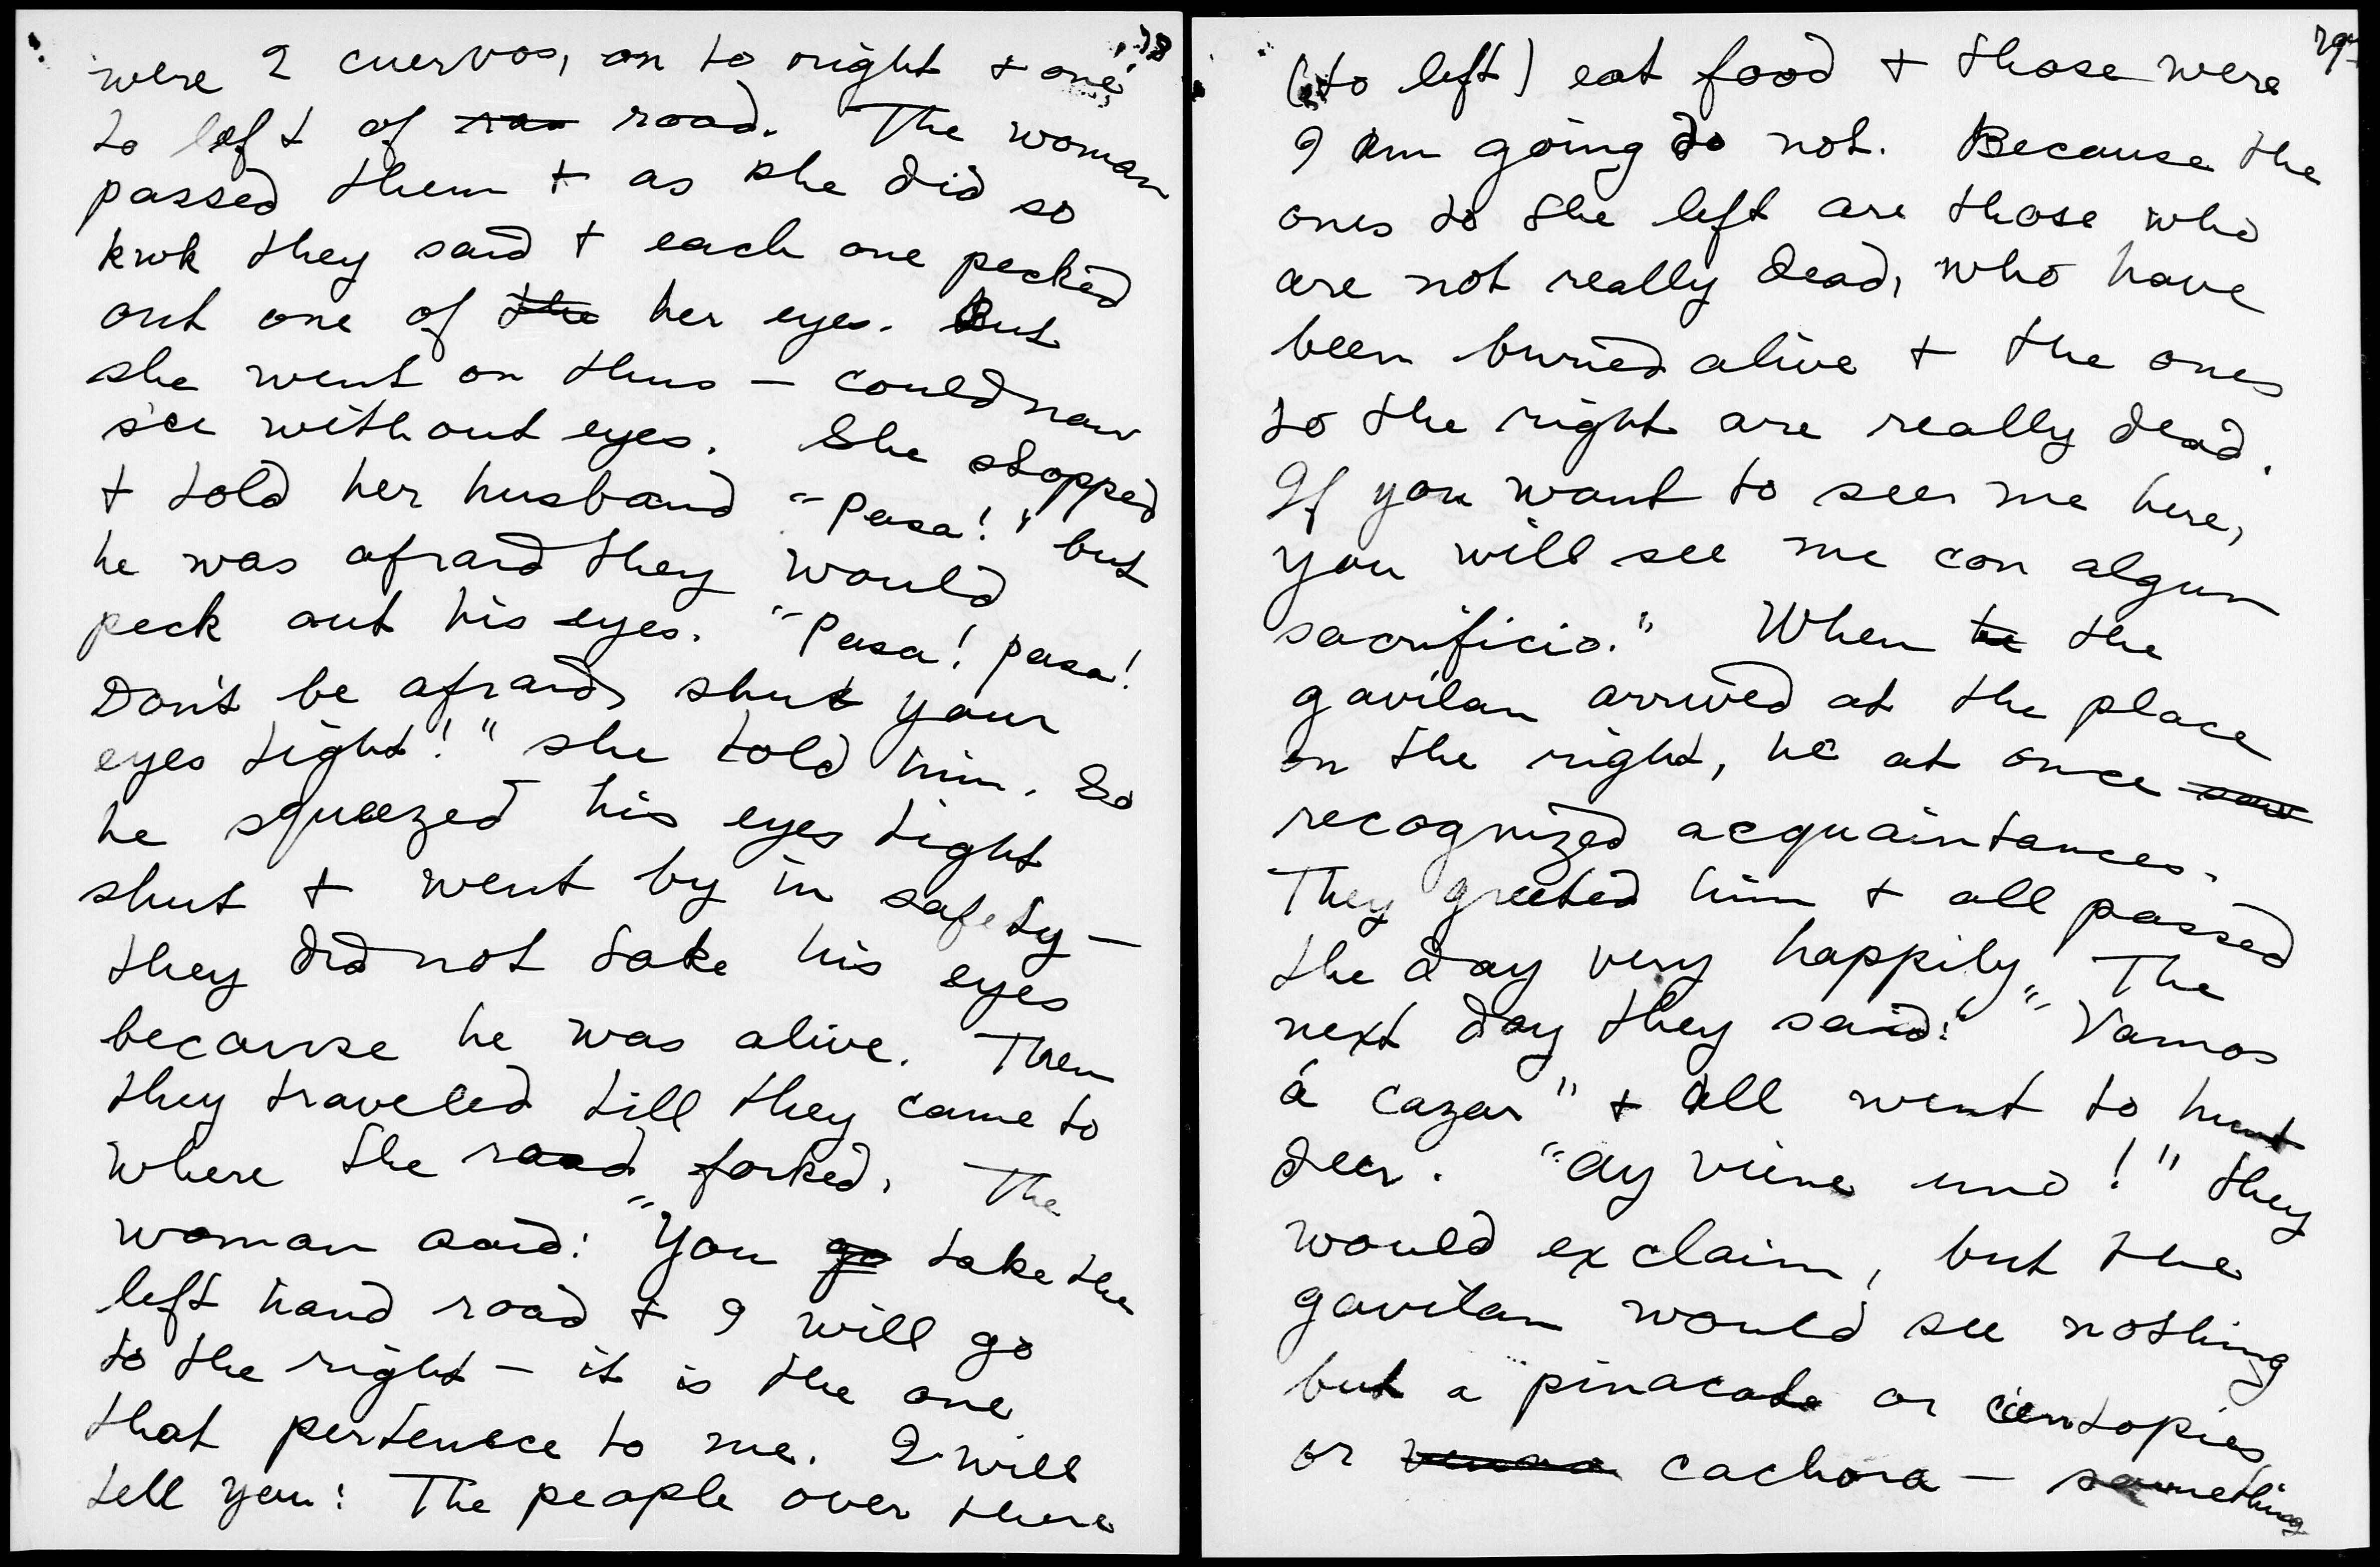 78
were 2 cuervos, on to right + one
to left of roa road. The woman
passed them + as she did so
kwk they said + each one pecked
out one of the her eyes. But
she went on thus — could now
see without eyes. She stopped
+ told her husband "Pasa!" but
he was afraid they would
peck out his eyes. "Pasa! pasa!
Don't be afraid, shut your
eyes tight!" she told him. So
he squeezed his eyes tight
shut + went by in safety —
they did not take his eyes
because he was alive. Then
they traveled till they came to
where the road forked. The
woman said: "You go take the
left hand road + I will go
to the right — it is the one
that pertenece to me. I will
tell you: The people over there
79
(to left) eat food + those were
I am going do not. Because the
ones to the left are those who
are not really dead, who have
been buried alive + the ones
to the right are really dead.
If you want to see me here,
you will see me con algun
sacrificio." When he the
gavilan arrived at the place
on the right, he at once saw
recognized acquaintances.
They greeted him + all passed
the day very happily. The
next day they said: "Vamos
á cazar" + all went to hunt
deer. "Ay viene uno!" they
would exclaim, but the
gavilan would see nothing
but a pinacate or cientopies
or cachora — something